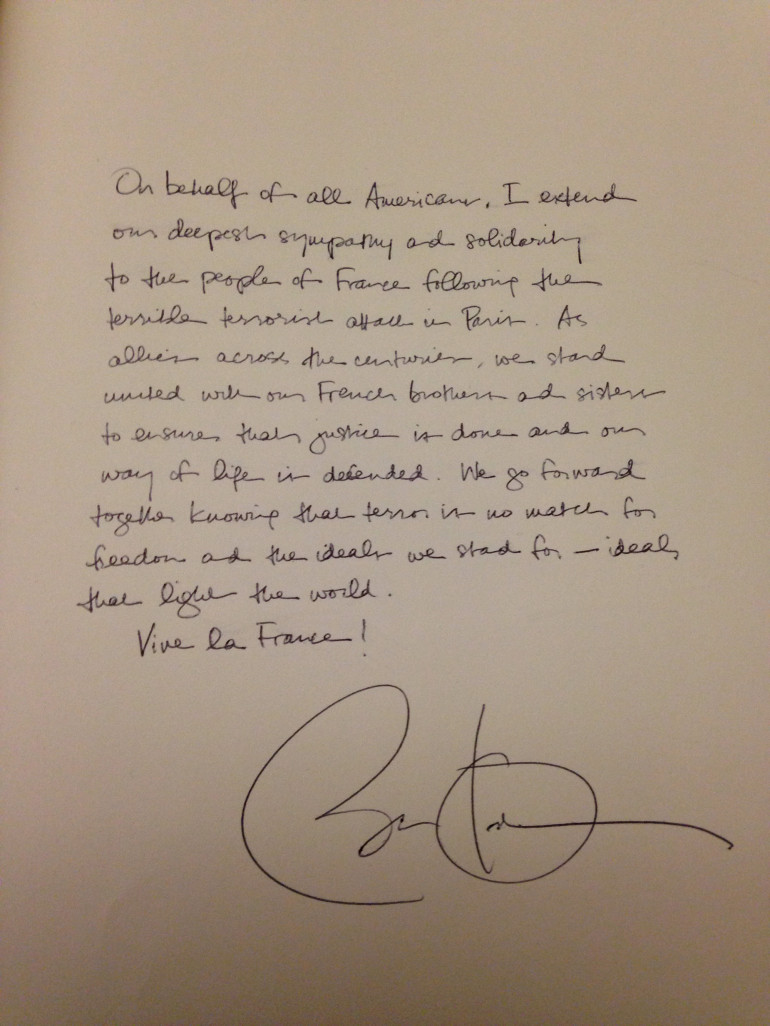 On behalf of all Americans, I extend
our deepest sympathy and solidarity
to the people of France following the
terrible terrorist attack in Paris. As
allies across the centuries, we stand
united with our French brothers and sisters
to ensure that justice is done and our
way of life is defended. We go forward
together knowing that terror is no match for
freedom and the ideals we stand for — ideals
that light the world.
Vive la France!